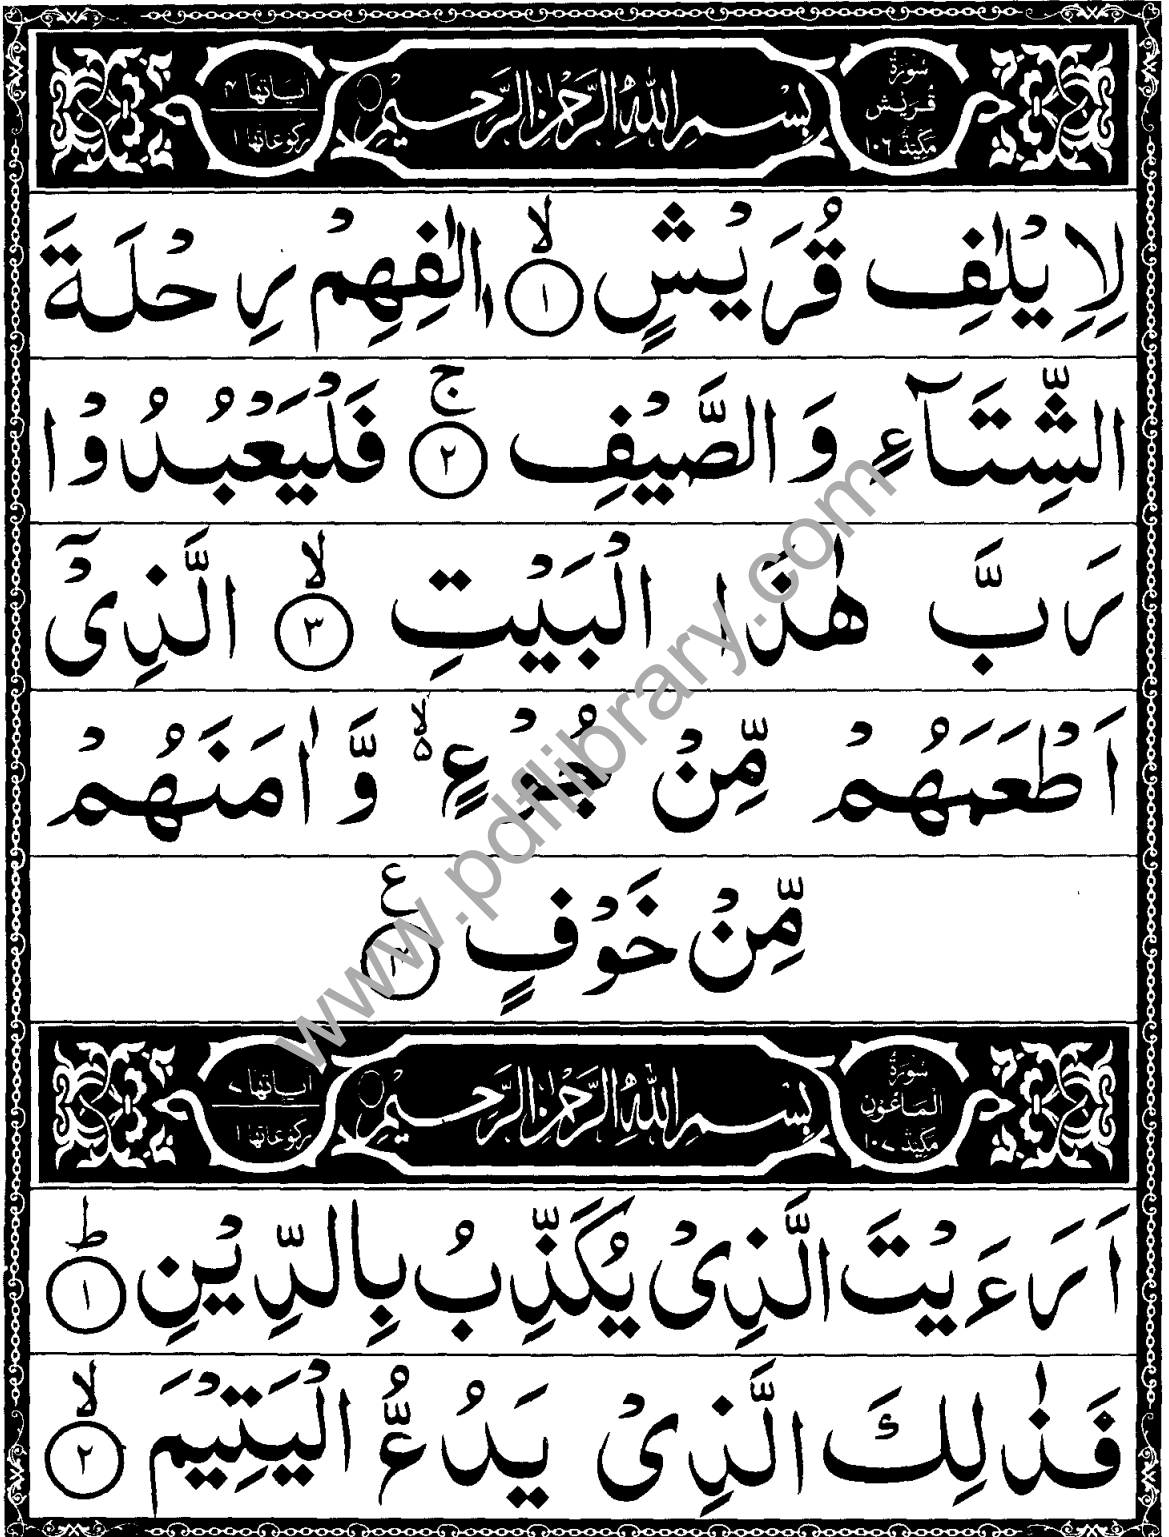 سُوْرَةُ قُرَيْشٍ مَكِّيَّةٌ ١٠٦
بِسْمِ اللّٰهِ الرَّحْمٰنِ الرَّحِيْمِ
اٰيَاتُهَا ٤ رُكُوْعَاتُهَا ١
لِاِيْلٰفِ قُرَيْشٍ ۙ﴿١﴾ اٖلٰفِهِمْ رِحْلَةَ
الشِّتَآءِ وَالصَّيْفِ ۚ﴿٢﴾ فَلْيَعْبُدُوْا
رَبَّ هٰذَا الْبَيْتِ ۙ﴿٣﴾ الَّذِيْٓ
اَطْعَمَهُمْ مِّنْ جُوْعٍ ۙ۬ وَّاٰمَنَهُمْ
مِّنْ خَوْفٍ ﴿٤﴾ ع
سُوْرَةُ الْمَاعُوْنِ مَكِّيَّةٌ ١٠٧
بِسْمِ اللّٰهِ الرَّحْمٰنِ الرَّحِيْمِ
اٰيَاتُهَا ٧ رُكُوْعَاتُهَا ١
اَرَءَيْتَ الَّذِيْ يُكَذِّبُ بِالدِّيْنِ ؕ﴿١﴾
فَذٰلِكَ الَّذِيْ يَدُعُّ الْيَتِيْمَ ۙ﴿٢﴾
www.pdflibrary.com